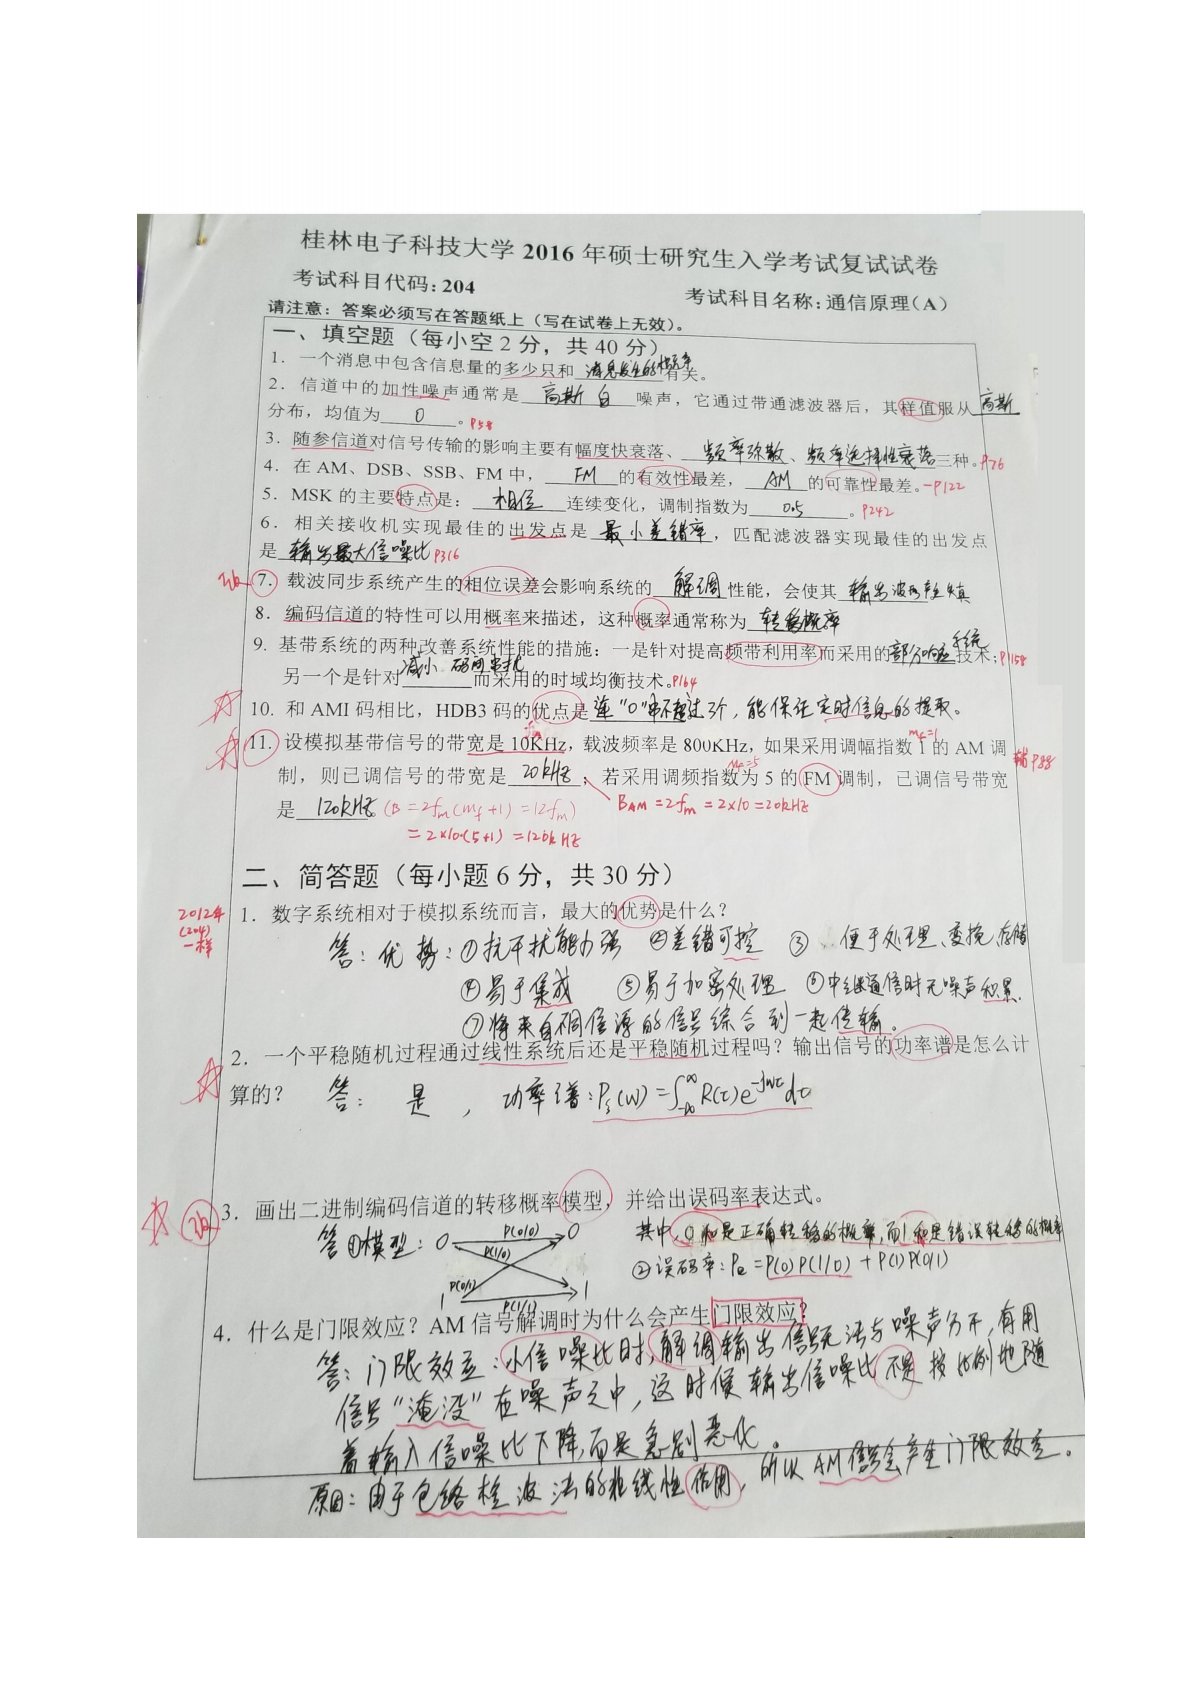 桂林电子科技大学 2016 年硕士研究生入学考试复试试卷
考试科目代码: 204 考试科目名称: 通信原理(A)
请注意: 答案必须写在答题纸上 (写在试卷上无效)。
一、填空题 (每小空 2 分, 共 40 分)
1. 一个消息中包含信息量的多少只和 消息发生的概率 有关。
2. 信道中的加性噪声通常是 高斯白 噪声, 它通过带通滤波器后, 其样值服从 高斯
分布, 均值为 0 。 P58
3. 随参信道对信号传输的影响主要有幅度快衰落、 频率弥散、频率选择性衰落 三种。 P76
4. 在 AM、DSB、SSB、FM 中, FM 的有效性最差, AM 的可靠性最差。 -P122
5. MSK 的主要特点是: 相位 连续变化, 调制指数为 0.5 。 P242
6. 相关接收机实现最佳的出发点是 最小差错率 , 匹配滤波器实现最佳的出发点
是 输出最大信噪比 P316
7. 载波同步系统产生的相位误差会影响系统的 解调 性能, 会使其 输出波形失真
8. 编码信道的特性可以用概率来描述, 这种概率通常称为 转移概率
9. 基带系统的两种改善系统性能的措施: 一是针对提高频带利用率而采用的 部分响应系统 技术; P158
另一个是针对 减小码间串扰 而采用的时域均衡技术。 P164
10. 和 AMI 码相比, HDB3 码的优点是 连"0"串不超过3个, 能保证定时信息的提取。
11. 设模拟基带信号的带宽是 10KHz, 载波频率是 800KHz, 如果采用调幅指数 1 的 AM 调
制, 则已调信号的带宽是 20kHz ; 若采用调频指数为 5 的 FM 调制, 已调信号带宽
是 120kHz (B=2fm(mf+1)=12fm) BAM=2fm=2×10=20kHz
=2×10·(5+1)=120kHz
二、简答题 (每小题 6 分, 共 30 分)
2012年
(204)
一样
1. 数字系统相对于模拟系统而言, 最大的优势是什么?
答: 优势: ①抗干扰能力强 ②差错可控 ③ 便于处理、变换、存储
④易于集成 ⑤易于加密处理 ⑥中继通信时无噪声积累.
⑦将来自不同信源的信号综合到一起传输。
2. 一个平稳随机过程通过线性系统后还是平稳随机过程吗? 输出信号的功率谱是怎么计
算的? 答: 是, 功率谱: Ps(w)=∫-∞∞R(τ)e-jwτdτ
3. 画出二进制编码信道的转移概率模型, 并给出误码率表达式。
答①模型: 0 P(0/0) 0
P(1/0)
P(0/1)
1 P(1/1) 1
②误码率: Pe=P(0)P(1/0)+P(1)P(0/1)
4. 什么是门限效应? AM 信号解调时为什么会产生门限效应?
答: 门限效应: 小信噪比时, 解调输出信号无法与噪声分开, 有用
信号"淹没"在噪声之中, 这时候输出信噪比不是按比例地随
着输入信噪比下降, 而是急剧恶化。
原因: 由于包络检波法的非线性作用, 所以AM信号会产生门限效应。